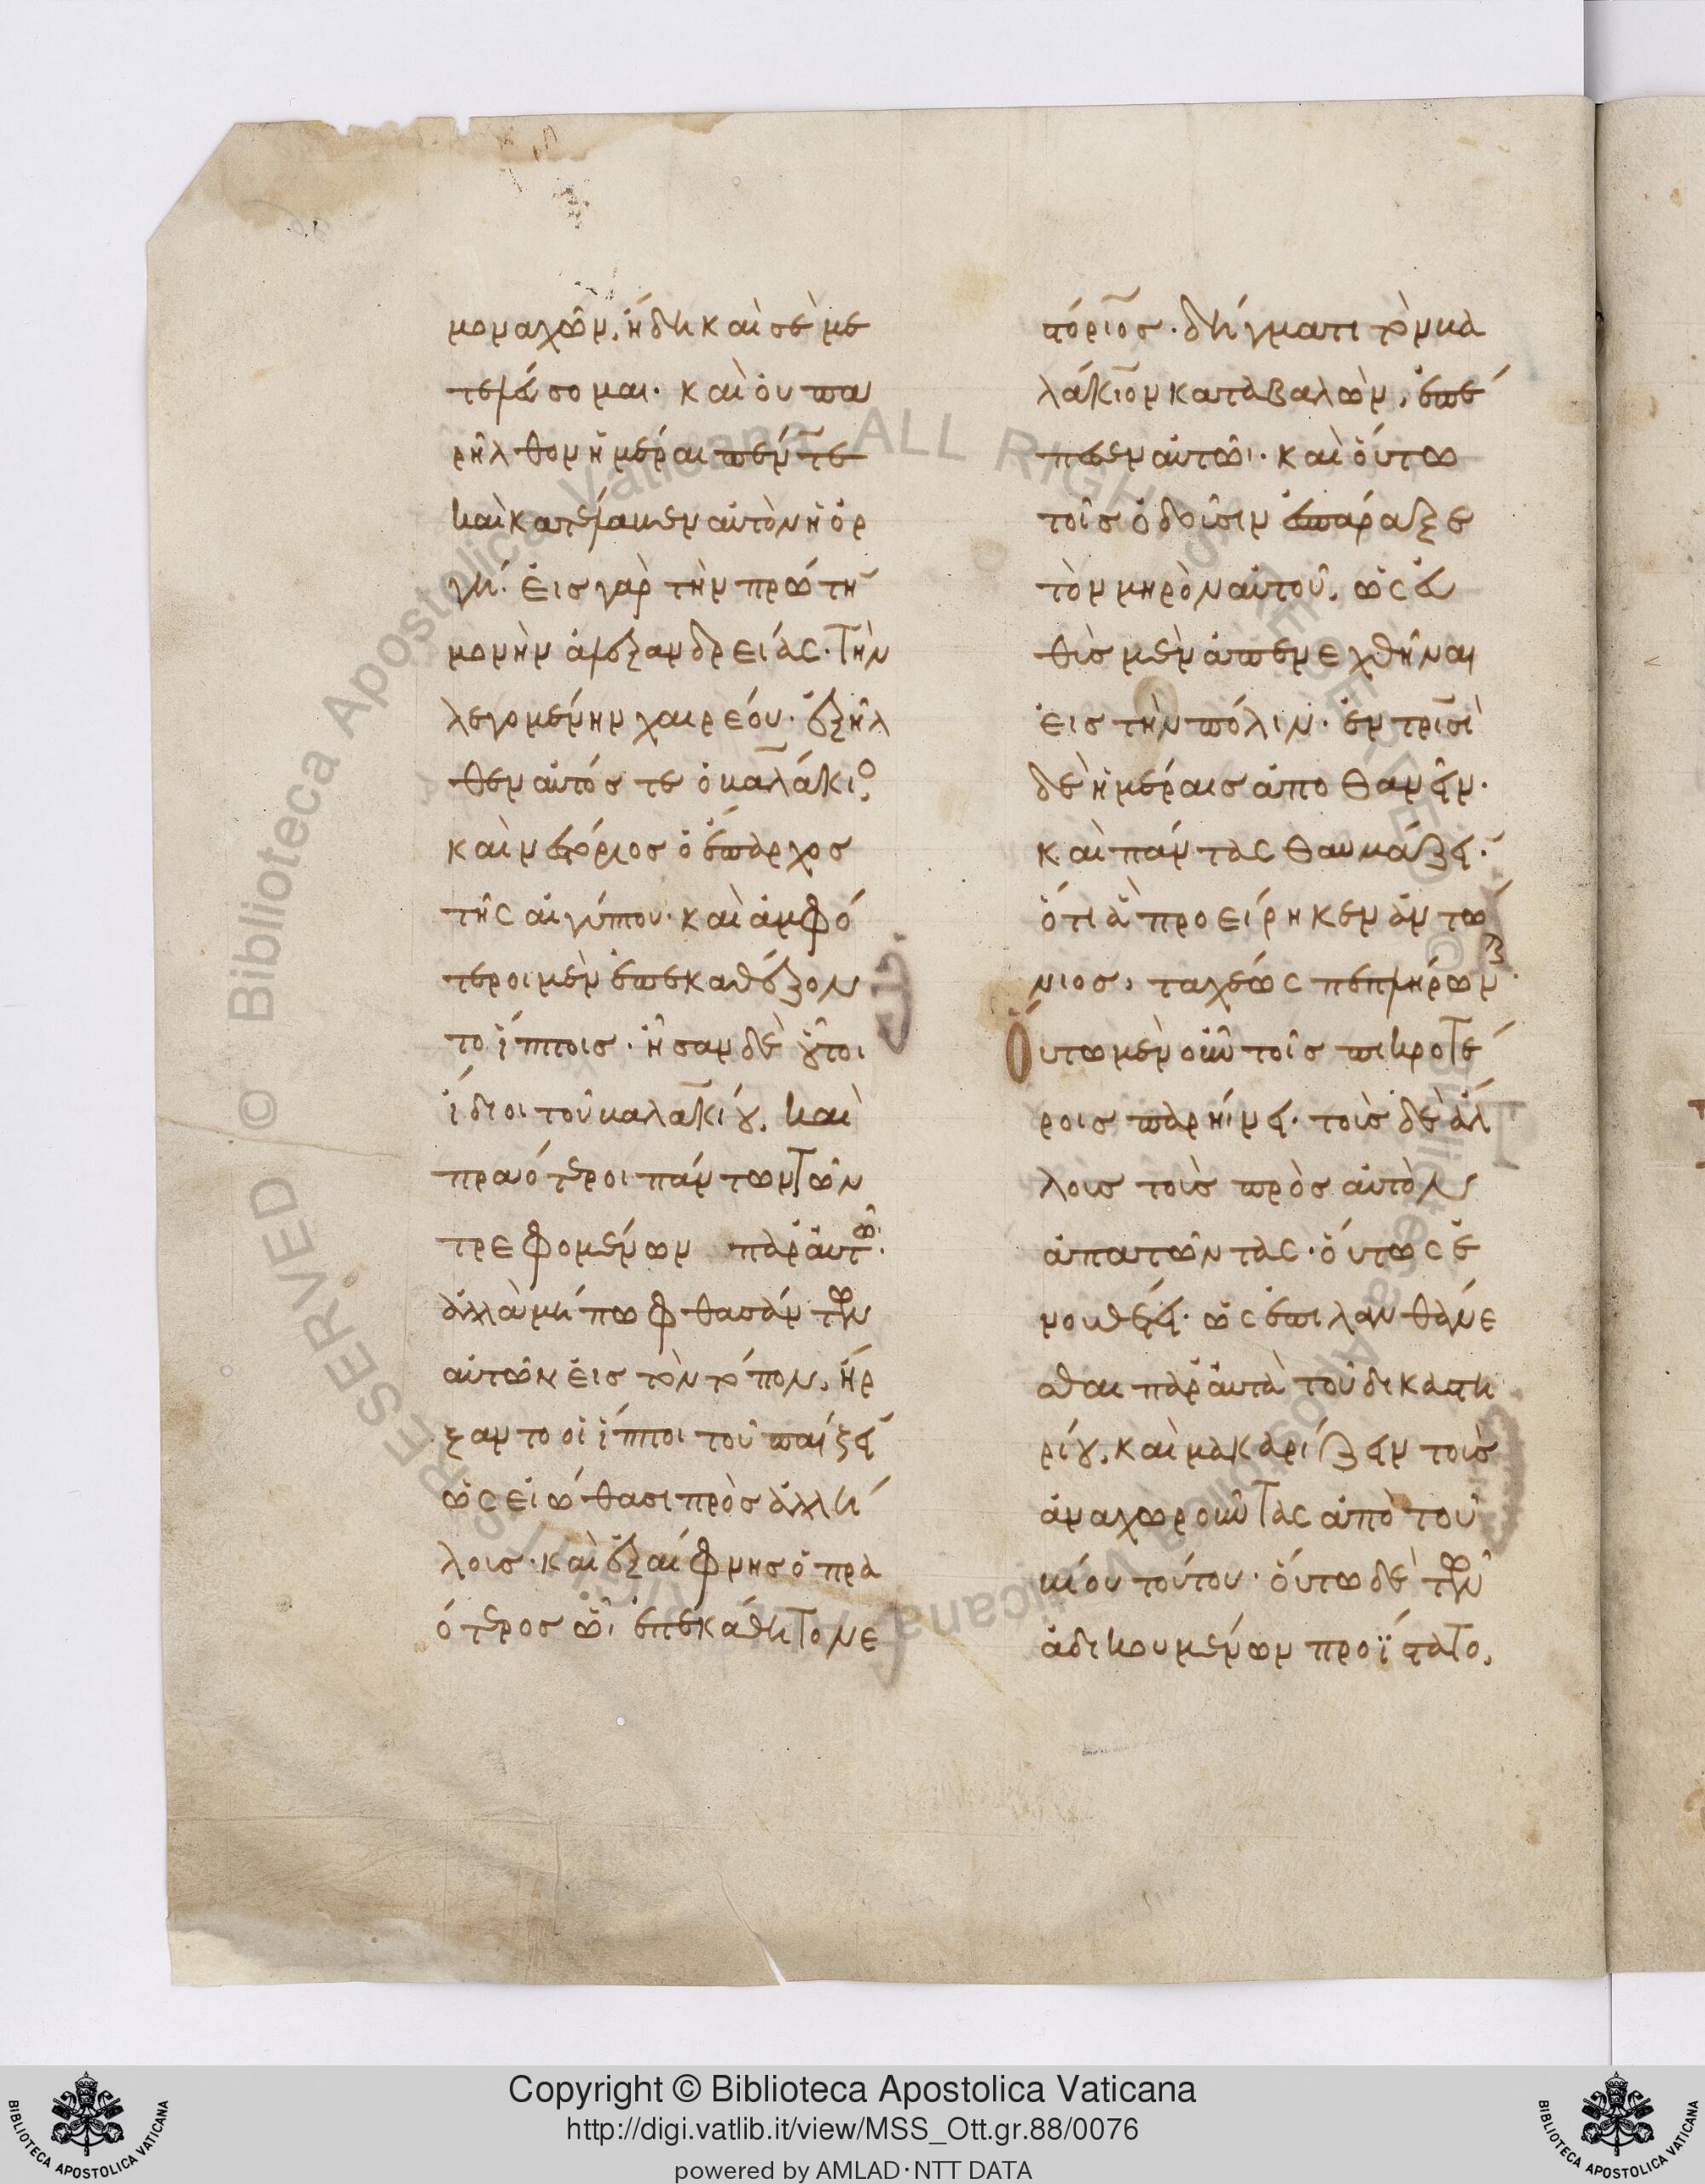 μοναχῶν, ἤδη καὶ σὲ με
τελεύσομαι· καὶ οὐ πα
ρῆλθον ἡμέραι πέντε
καὶ κατέλαβεν αὐτὸν ἡ ὀρ
γή. εἰς γὰρ τὴν πρώτη̄
μονὴν ἀλεξανδρείας· τὴν
λεγομένην χαιρέου· ἐξῆλ
θεν αὐτός τε ὁ βαλάκιο,
καὶ νεστόριος ὁ ἔπαρχος
τῆς αἰγύπτου· καὶ ἀμφό
τεροι μὲν ἐπεκαθέζον
το ἵπποις· ἦσαν δὲ οὗτοι
ἴδιοι τοῦ βαλακίου, καὶ
πραότεροι πάντων τῶν
τρεφομένων παρ' αὐτῶ·
ἀλλὰ μήπω φθασάντων
αὐτῶν εἰς τὸν τόπον, ἤρ
ξαντο οἱ ἵπποι τοῦ παίζεῑ
ὡς εἰώθασι πρὸς ἀλλή
λοις· καὶ ἐξαίφνης ὁ πρα
ότερος ᾧ ἐπεκάθητο νε
στόριος· δήγματι τὸν βα
λάκιον καταβαλὼν, ἐπέ
πεσεν αὐτῶ· καὶ οὕτω
τοῖς ὀδοῦσιν ἐσπάραξε
τὸν μηρὸν αὐτοῦ, ὡς εὐ
θὺς μὲν ἀπενεχθῆναι
εἰς τὴν πόλιν· ἐν τρισὶ
δὲ ἡμέραις ἀποθανεῖν·
καὶ πάντας θαυμάζεῑ·
ὅτι ἃ προείρηκεν ἀντώ
νιος, ταχέως πεπλήρων·
Οὕτω μὲν οὖν τοῖς πικροτέ
ροις παρήινει· τοὺς δὲ ἀλ
λους τοὺς πρὸς αὐτὸν
ἀπαντῶντας· οὕτως ἐ
νουθέτει· ὡς ἐπιλανθάνε
σθαι παρ' αὐτὰ τοῦ δικαστη
ρίου, καὶ μακαρίζειν τοὺς
ἀναχωροῦντας ἀπὸ τοῦ
βίου τούτου· οὕτω δὲ τῶν
ἀδικουμένων προΐστατο,
Copyright © Biblioteca Apostolica Vaticana
http://digi.vatlib.it/view/MSS_Ott.gr.88/0076
powered by AMLAD·NTT DATA
BIBLIOTECA APOSTOLICA VATICANA
BIBLIOTECA APOSTOLICA VATICANA